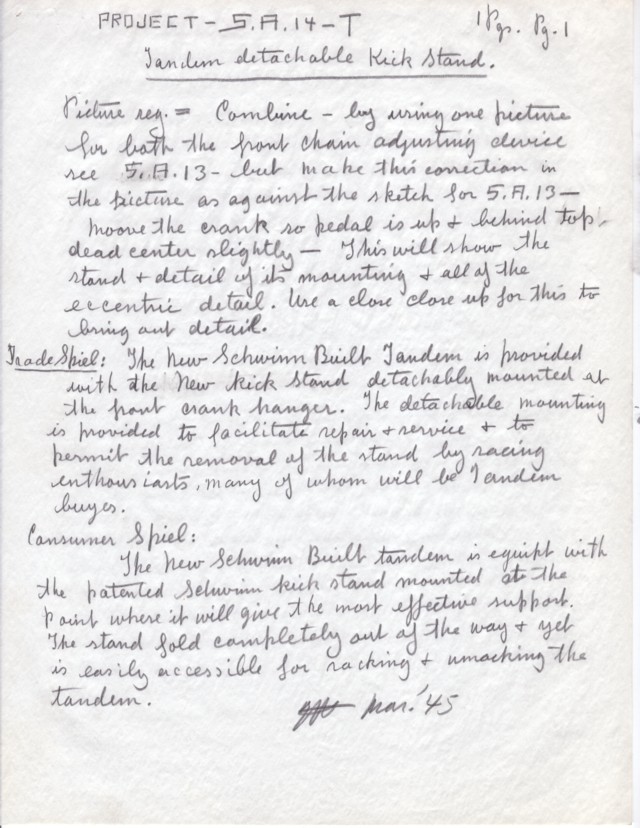 PROJECT - S.A.14 - T 1 Pgs. Pg. 1
Tandem detachable Kick Stand.
Picture req. = Combine - by using one picture
for both the front chain adjusting device
see S.A.13 - but make this correction in
the picture as against the sketch for S.A.13 -
moove the crank so pedal is up & behind top
dead center slightly - This will show the
stand & detail of its mounting & all of the
eccentric detail. Use a close close up for this to
bring out detail.
Trade Spiel: The New Schwinn Built Tandem is provided
with the New Kick Stand detachably mounted at
the front crank hanger. The detachable mounting
is provided to facilitate repair & service & to
permit the removal of the stand by racing
enthousiasts, many of whom will be Tandem
buyes.
Consumer Spiel:
The New Schwinn Built tandem is equipt with
the patented Schwinn kick stand mounted at the
point where it will give the most effective support.
The stand fold completely out of the way & yet
is easily accessible for racking & unracking the
tandem.
Mar. '45